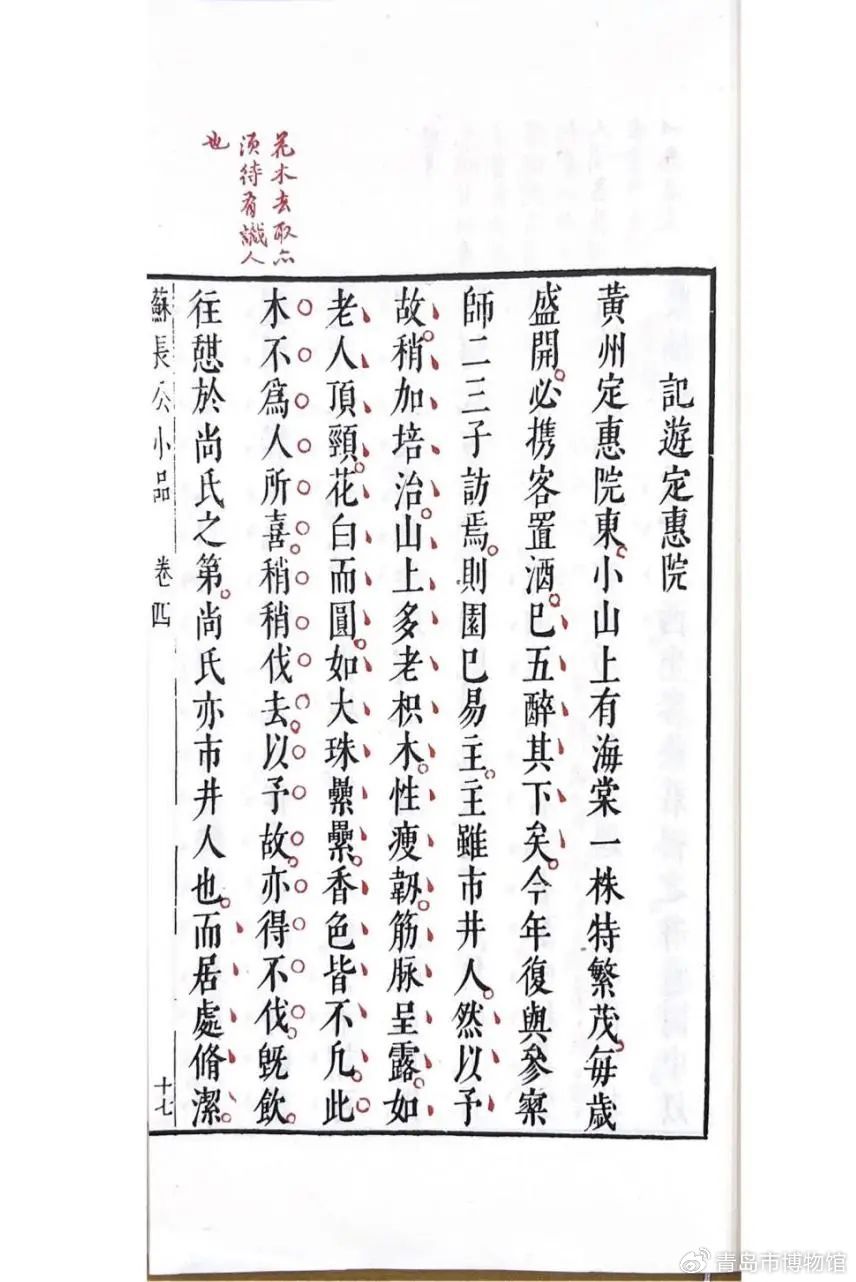 花木去取亦
須待有識人
也
記遊定惠院
黃州定惠院東小山上有海棠一株特繁茂每歲
盛開必携客置酒已五醉其下矣今年復與參寥
師二三子訪焉則園已易主主雖市井人然以予
故稍加培治山上多老枳木性瘦韌筋脉呈露如
老人頂頸花白而圓如大珠纍纍香色皆不凡此
木不爲人所喜稍稍伐去以予故亦得不伐旣飲
往憇於尚氏之第尚氏亦市井人也而居處脩潔
蘇長公小品 卷四 十七
青岛市博物馆